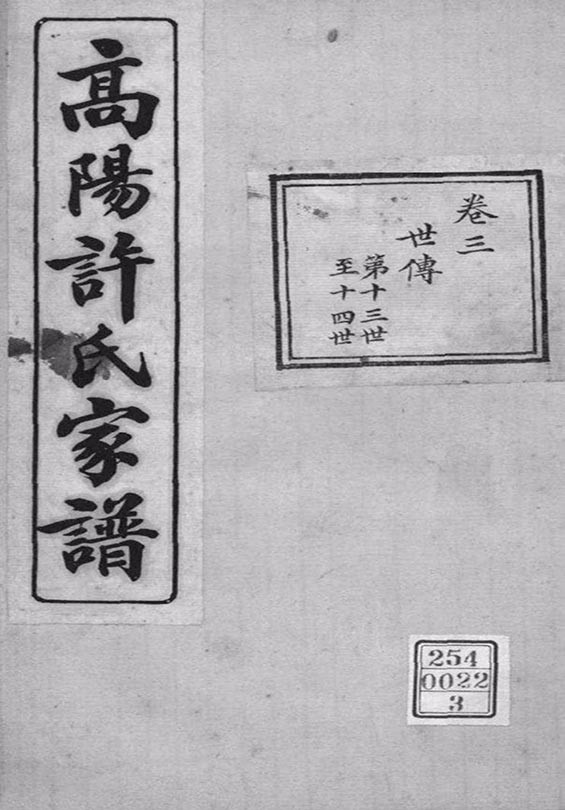 高陽許氏家譜
卷三
世傳
第十三世
至十四世
254
0022
3